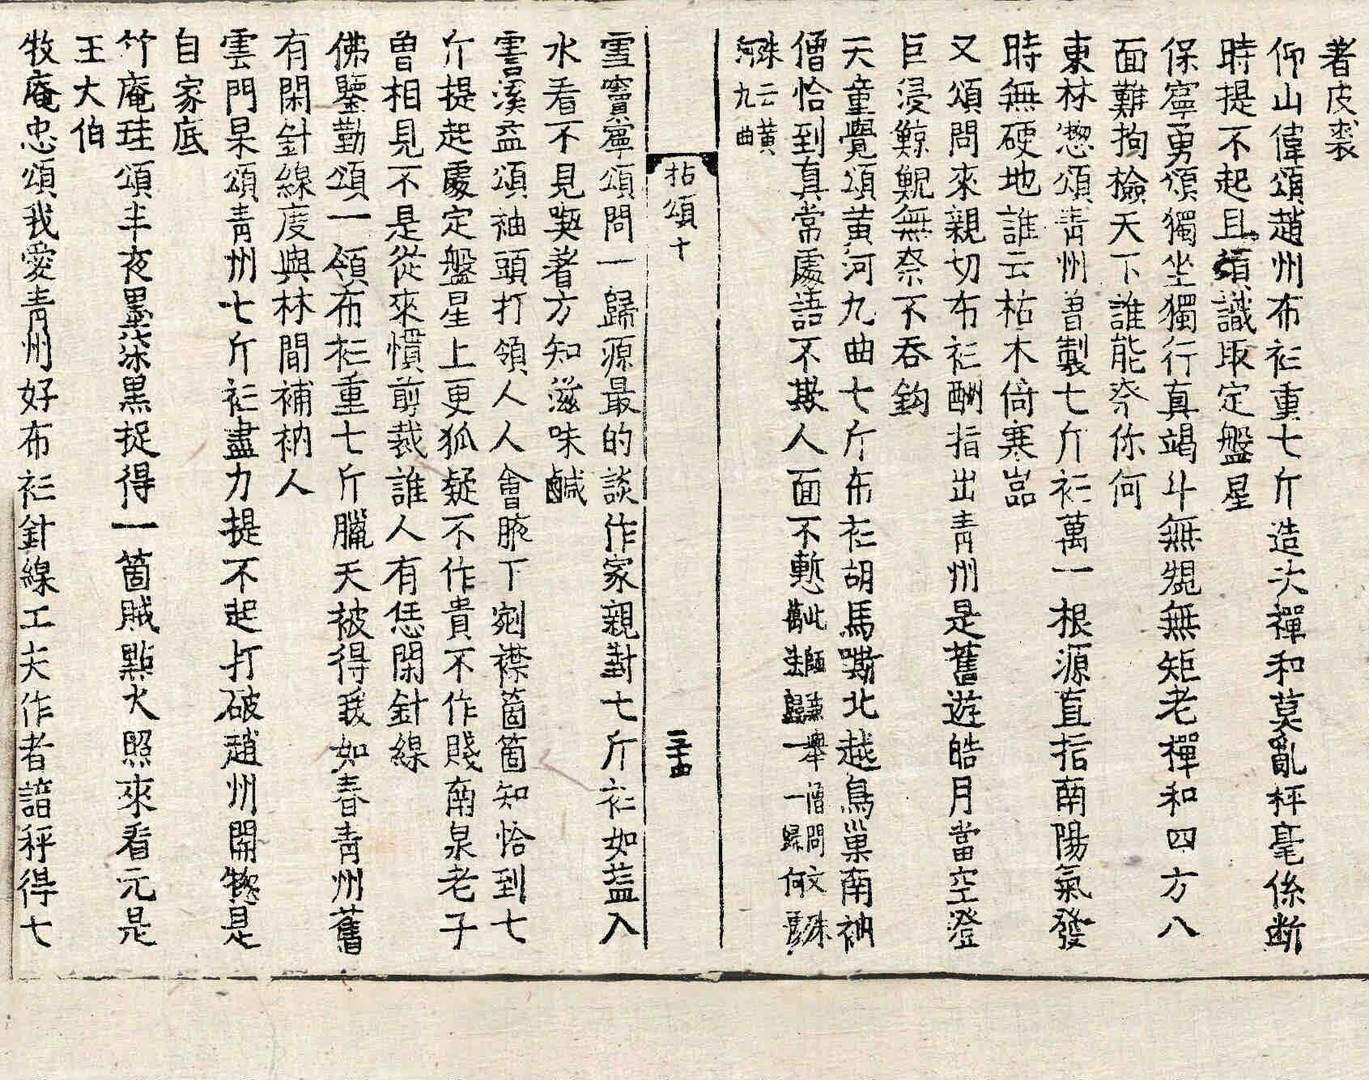 者皮裘
仰山偉頌趙州布衫重七斤造次禪和莫亂秤毫係断
時提不起且須識取定盤星
保寧勇頌獨坐獨行真竭斗無䂓無矩老禪和四方八
面難拘撿天下誰能奈你何
東林惣頌靑州曾製七斤衫萬一根源直指南陽氣發
時無硬地誰云枯木倚寒嵓
又頌問來親切布衫酬指出靑州是舊遊皓月當空澄
巨浸鯨鯢無奈不吞鈎
天童覺頌黄河九曲七斤布衫胡馬嘶北越鳥巢南衲
僧恰到真常處語不欺人面不慙此師兼擧僧問文殊
萬法歸一一歸何處
殊云黄
河九曲
拈頌十
三十四
雪竇寧頌問一歸源最的談作家親對七斤衫如盐入
水看不見喫著方知滋味鹹
霅溪益頌袖頭打領人人會腋下剜襟箇箇知恰到七
斤提起處定盤星上更狐疑不作貴不作賤南泉老子
曾相見不是從來慣剪裁誰人有恁閑針線
佛鑒懃頌一領布衫重七斤臘天被得我如春靑州舊
有閑針線度與林間補衲人
雲門杲頌靑州七斤衫盡力提不起打破趙州關惣是
自家底
竹庵珪頌半夜墨柒黑捉得一箇賊點火照來看元是
王大伯
牧庵忠頌我愛靑州好布衫針線工夫作者諳秤得七